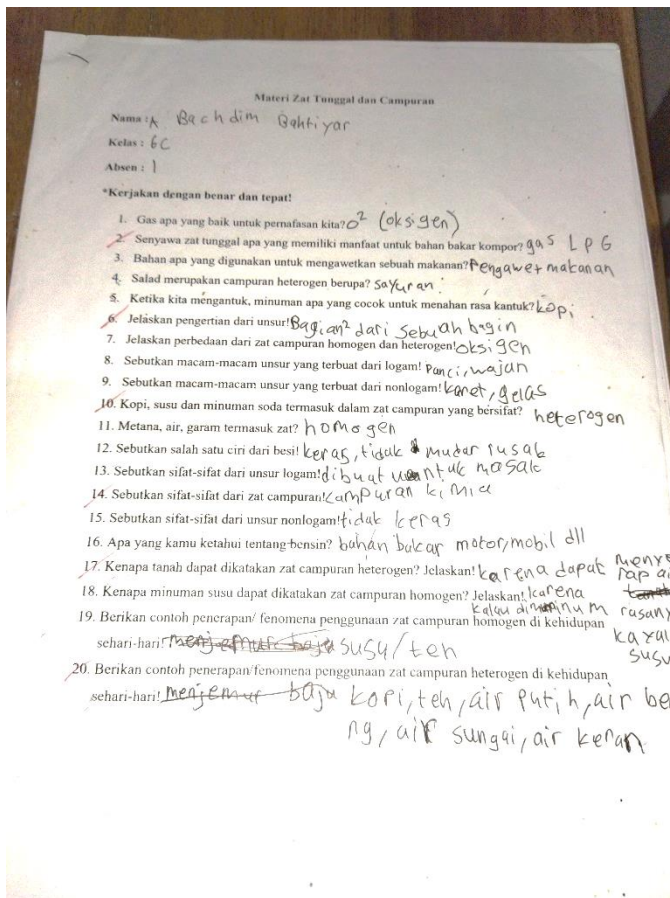 Materi Zat Tunggal dan Campuran
Nama : A Bachdim Bahtiyar
Kelas : 6C
Absen : 1
*Kerjakan dengan benar dan tepat!
1. Gas apa yang baik untuk pernafasan kita? O² (oksigen)
2. Senyawa zat tunggal apa yang memiliki manfaat untuk bahan bakar kompor? gas LPG
3. Bahan apa yang digunakan untuk mengawetkan sebuah makanan? Pengawet makanan
4. Salad merupakan campuran heterogen berupa? Sayuran.
5. Ketika kita mengantuk, minuman apa yang cocok untuk menahan rasa kantuk? kopi
6. Jelaskan pengertian dari unsur! Bagian² dari sebuah bagin
7. Jelaskan perbedaan dari zat campuran homogen dan heterogen! oksigen
8. Sebutkan macam-macam unsur yang terbuat dari logam! Panci, wajan
9. Sebutkan macam-macam unsur yang terbuat dari nonlogam! karet, gelas
10. Kopi, susu dan minuman soda termasuk dalam zat campuran yang bersifat? heterogen
11. Metana, air, garam termasuk zat? homogen
12. Sebutkan salah satu ciri dari besi! keras, tidak mudar rusak
13. Sebutkan sifat-sifat dari unsur logam! dibuat untuk masak
14. Sebutkan sifat-sifat dari zat campuran! campuran kimia
15. Sebutkan sifat-sifat dari unsur nonlogam! tidak keras
16. Apa yang kamu ketahui tentang bensin? bahan bakar motor/mobil dll
17. Kenapa tanah dapat dikatakan zat campuran heterogen? Jelaskan! karena dapat menye
rap ai
18. Kenapa minuman susu dapat dikatakan zat campuran homogen? Jelaskan! karena
kalau diminum rasany
kayak
susu
19. Berikan contoh penerapan/ fenomena penggunaan zat campuran homogen di kehidupan
sehari-hari! menjemur baju susu/teh
20. Berikan contoh penerapan/fenomena penggunaan zat campuran heterogen di kehidupan
sehari-hari! menjemur baju kopi, teh, air putih, air be
ng, air sungai, air keran